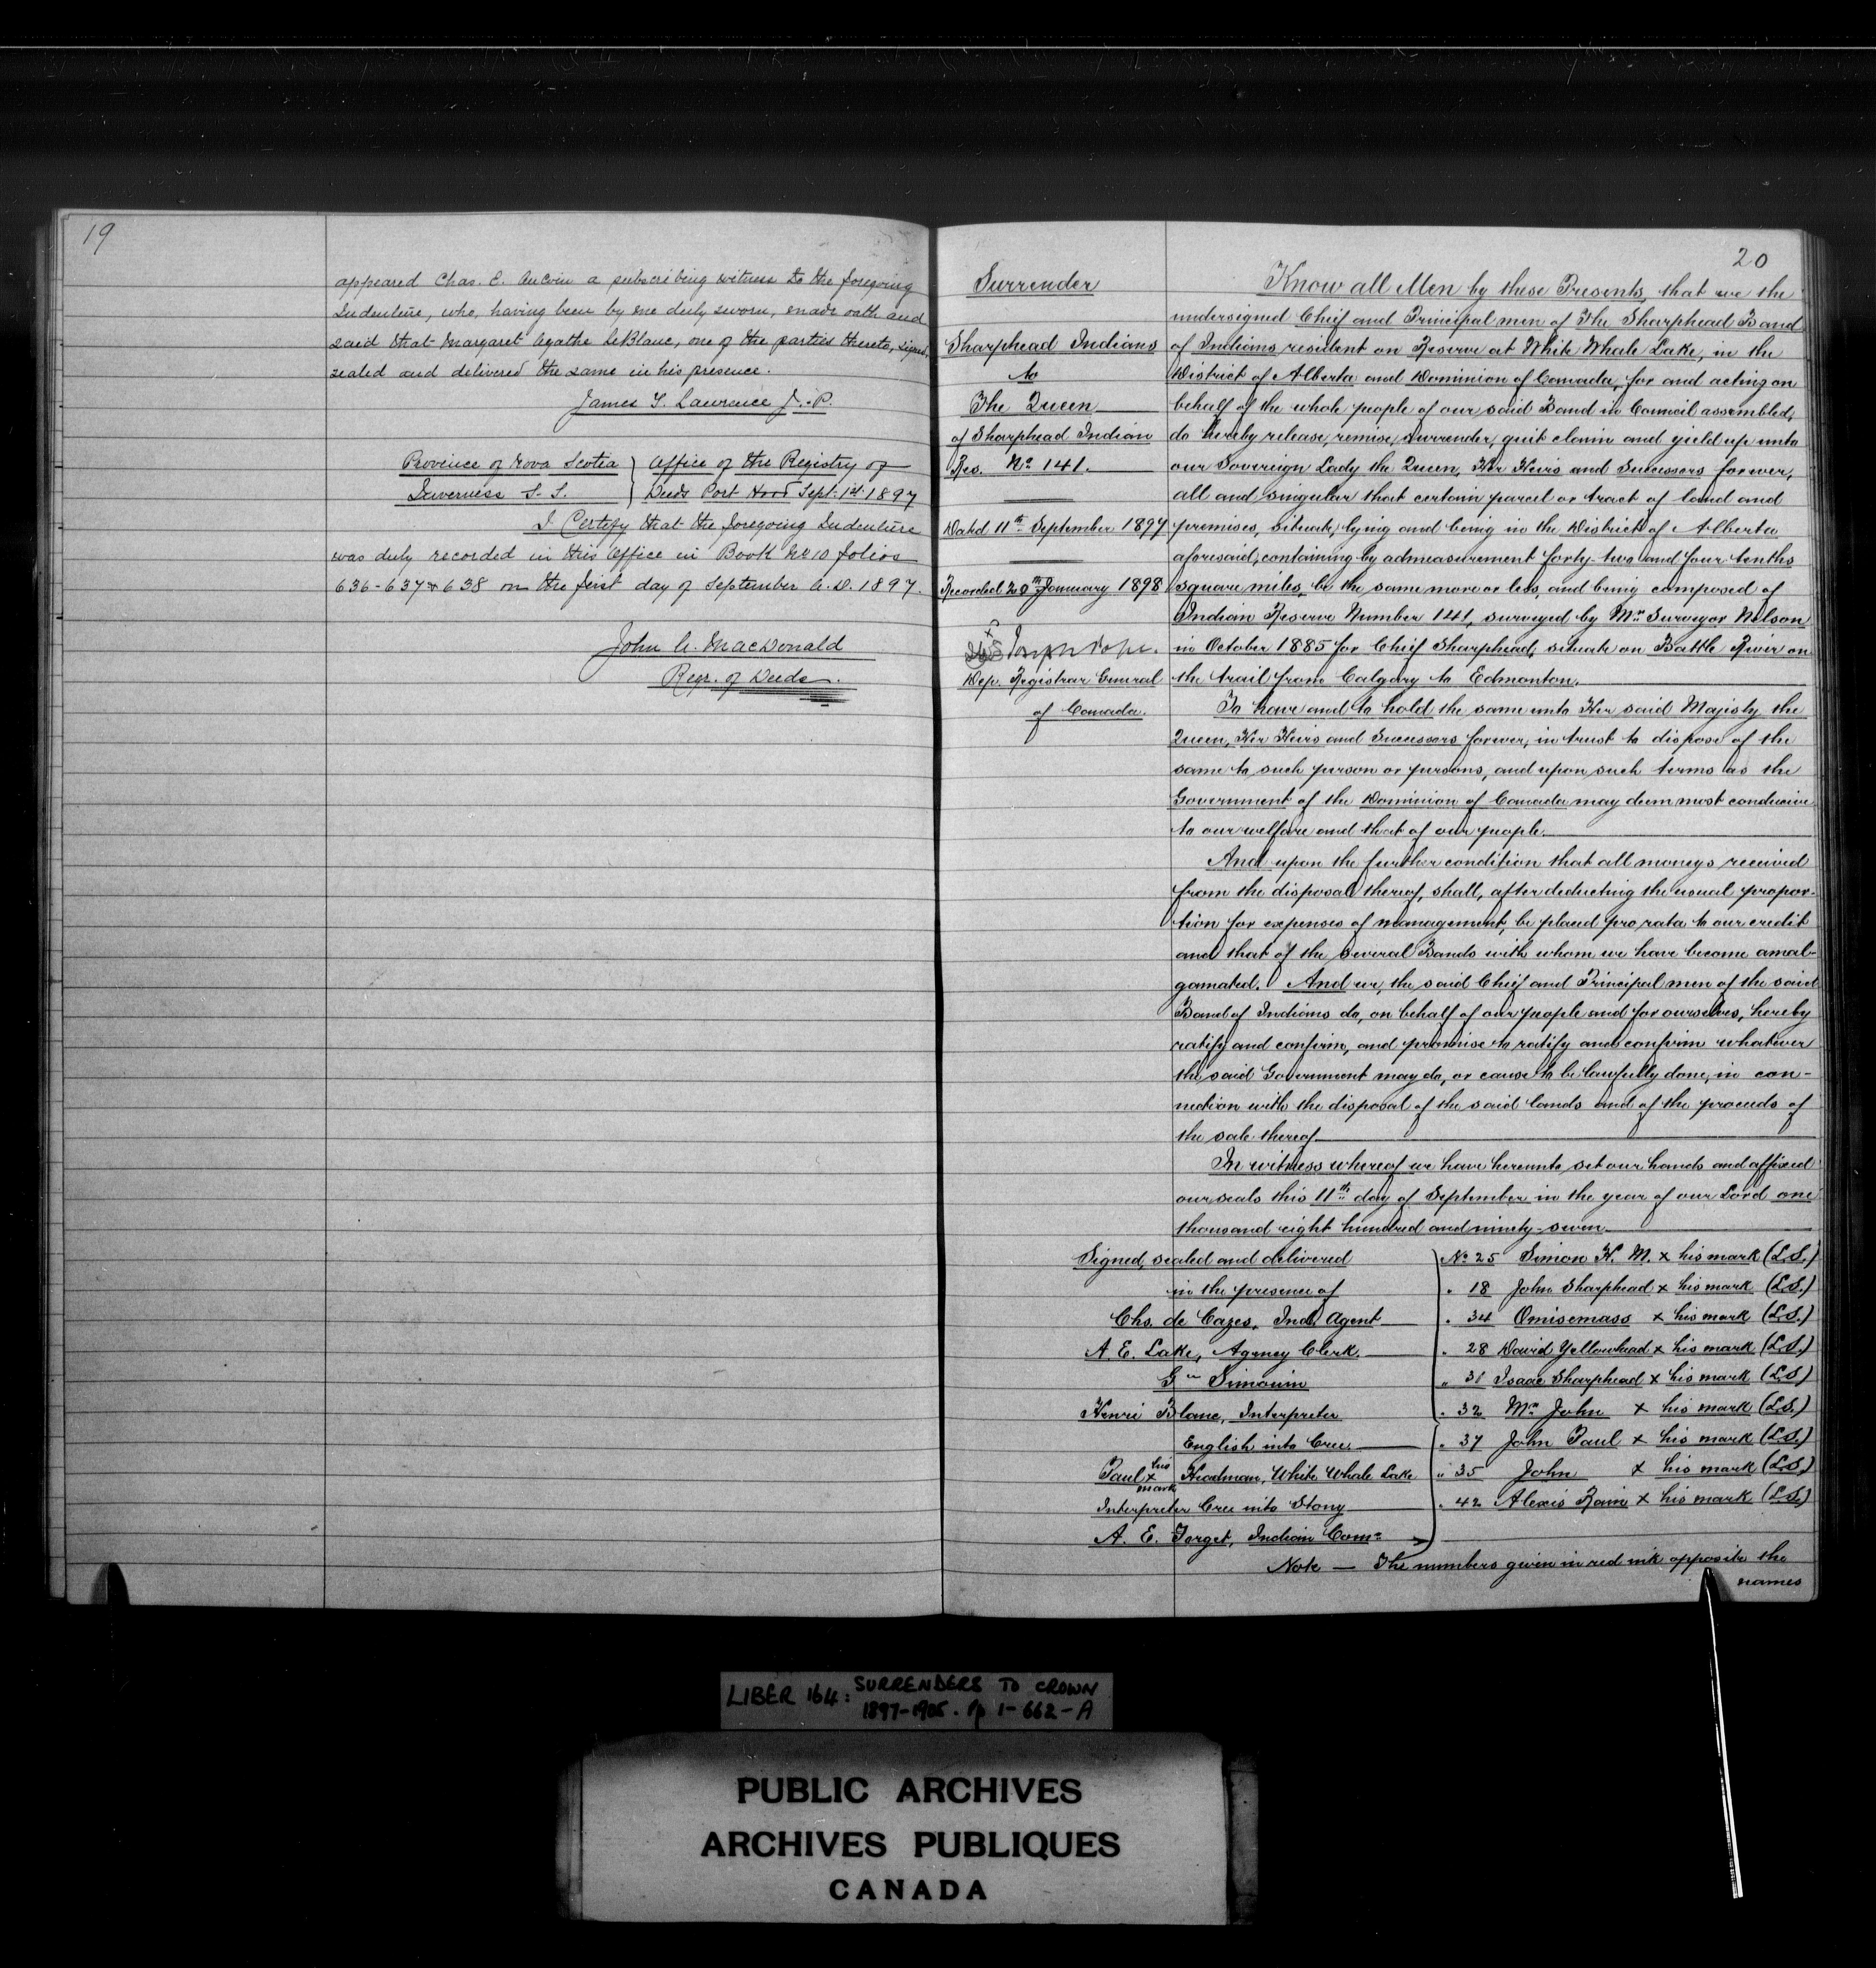 19
appeared Chas. E. AuCoin a subscribing witness to the foregoing
Indenture, who, having been by me duly sworn, made oath and
said that Margaret Agathe LeBlanc, one of the parties thereto, signed,
sealed and delivered the same in his presence.
James T. Lawrence J.P.
Province of Nova Scotia } Office of the Registry of
Inverness S.S. } Deeds Port Hood Sept. 1st. 1897
I Certify that the foregoing Indenture
was duly recorded in this Office in Book No 10 folios
636-637 & 638 on the first day of September A.D. 1897.
John A. MacDonald
Regr. of Deeds.
20
Surrender
Sharphead Indians
to
The Queen
of Sharphead Indian
Res. No 141.
Datd 11th September 1897
Recorded 20th January 1898
Joseph Pope.
Dep. Registrar General
of Canada.
Know all Men by these Presents, that we the
undersigned Chief and Principal men of The Sharphead Band
of Indians resident on Reserve at White Whale Lake, in the
District of Alberta and Dominion of Canada, for and acting on
behalf of the whole people of our said Band in Council assembled,
do hereby release, remise, surrender, quit claim and yield up unto
our Sovereign Lady the Queen, Her Heirs and Successors forever,
all and singular that certain parcel or tract of land and
premises, situate, lying and being in the District of Alberta
aforesaid, containing by admeasurement forty-two and four tenths
square miles, be the same more or less, and being composed of
Indian Reserve Number 141, surveyed by Mr Surveyor Nelson
in October 1885 for Chief Sharphead, situate on Battle River on
the trail from Calgary to Edmonton.
To have and to hold the same unto Her said Majesty the
Queen, Her Heirs and Successors forever, in trust to dispose of the
same to such person or persons, and upon such terms as the
Government of the Dominion of Canada may deem most conducive
to our welfare and that of our people.
And upon the further condition that all moneys received
from the disposal thereof, shall, after deducting the usual propor-
tion for expenses of management, be placed pro rata to our credit
and that of the several Bands with whom we have become amal-
gamated. And we, the said Chief and Principal men of the said
Band of Indians do, on behalf of our people and for ourselves, hereby
ratify and confirm, and promise to ratify and confirm whatever
the said Government may do, or cause to be lawfully done, in con-
nection with the disposal of the said lands and of the proceeds of
the sale thereof.
In witness whereof we have hereunto set our hands and affixed
our seals this 11th day of September in the year of our Lord one
thousand eight hundred and ninety-seven
Signed, sealed and delivered
in the presence of
Chs. de Cazes, Ind. Agent
A. E. Lake, Agency Clerk.
Gn Simonin
Henri Blanc, Interpreter
English into Cree.
Paul his x mark Headman, White Whale Lake
Interpreter Cree into Stony
A. E. Forget, Indian Comr
No 25 Simon K. M. x his mark (L.S.)
" 18 John Sharphead x his mark (L.S.)
" 34 Omisemass x his mark (L.S.)
" 28 David Yellowhead x his mark (L.S.)
" 31 Isaac Sharphead x his mark (L.S.)
" 32 Mr John x his mark (L.S.)
" 37 John Paul x his mark (L.S.)
" 35 John x his mark (L.S.)
" 42 Alexis Rain x his mark (L.S.)
Note — The numbers given in red ink opposite the
names
LIBER 164: SURRENDERS TO CROWN
1897-1905. Pp 1-662-A
PUBLIC ARCHIVES
ARCHIVES PUBLIQUES
CANADA